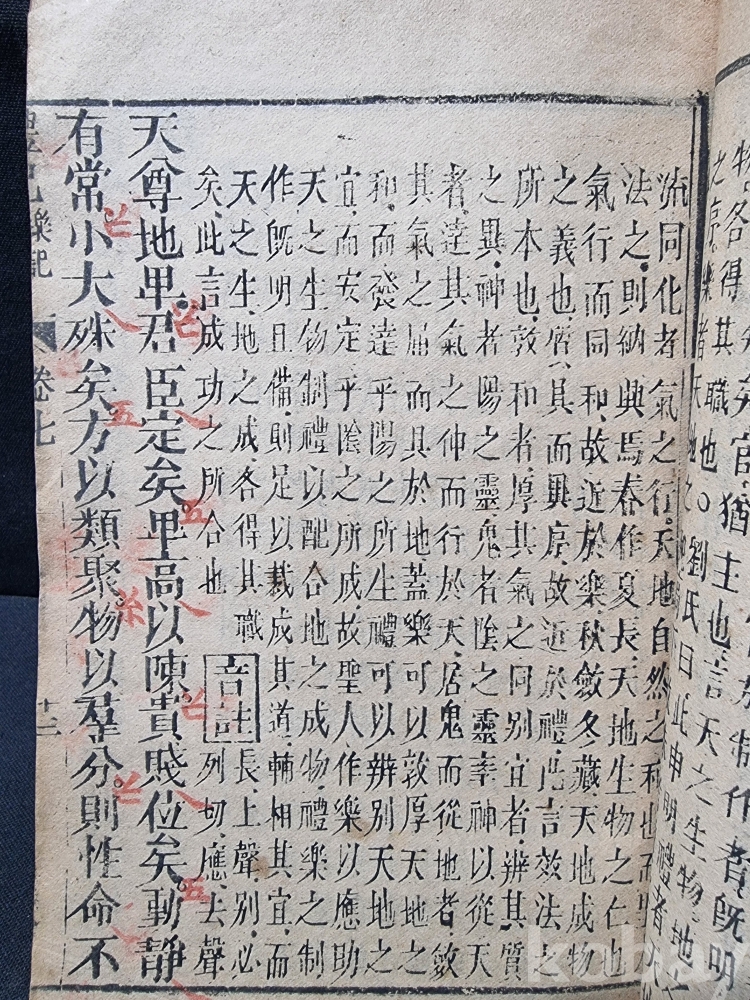 物各得其
矣官猶主也言天之生物地
職也○劉氏曰此申明禮者
流同化者氣之行天地自然之和也而聖
法之則納與焉春作夏長天地生物之仁也
氣行而同和故近於樂秋斂冬藏天地成物
之義也質具而異序故近於禮此言效法之
所本也敦和者厚其氣之同别宜者辨其質
之異神者陽之靈鬼者陰之靈率神以從天
者達其氣之伸而行於天居鬼而從地者斂
其氣之屈而具於地蓋樂可以敦厚天地之
和而發達乎陽之所生禮可以辨别天地之
宜而安定乎陰之所成故聖人作樂以應助
天之生物制禮以配合地之成物禮樂之制
作既明且備則足以裁成其道輔相其宜而
天之生地之成各得其職
矣此言成功之所合也
音註
長上聲别必
列切應去聲
天尊地卑君臣定矣卑高以陳貴賤位矣動靜
有常小大殊矣方以類聚物以羣分則性命不
禮記樂記 卷七 十二